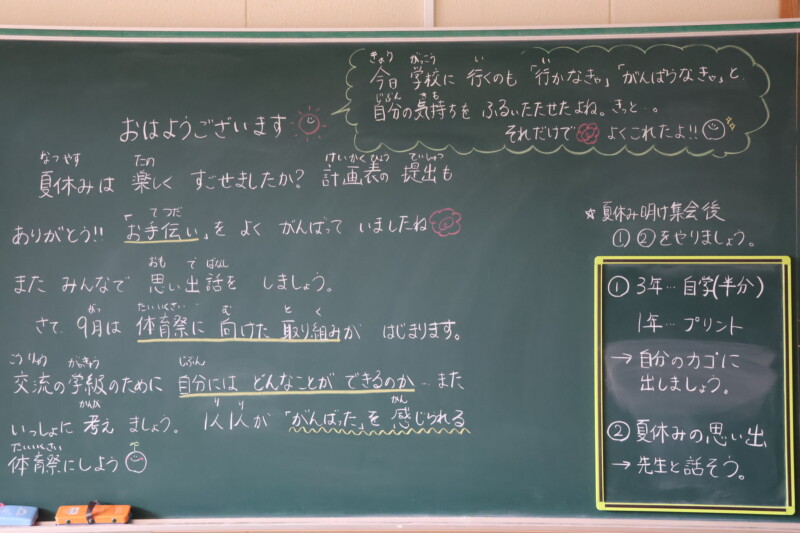 今日 学校に 行くのも 「行かなきゃ」「がんばらなきゃ」と
自分の気持ちを ふるいたたせたよね。きっと…。
それだけで よくこれたよ!!
おはようございます
夏休みは 楽しく すごせましたか? 計画表の 提出も
ありがとう!! 「お手伝い」を よく がんばって いましたね
また みんなで 思い出話を しましょう。
さて、9月は 体育祭に 向けた 取り組みが はじまります。
交流の学級のために 自分には どんなことが できるのか…また
いっしょに 考え ましょう。 1人1人が 「がんばった」を 感じられる
体育祭にしよう
☆夏休み明け集会後
①②をやりましょう。
① 3年…自学(半分)
1年…プリント
→ 自分のカゴに
出しましょう。
② 夏休みの思い出
→ 先生と話そう。